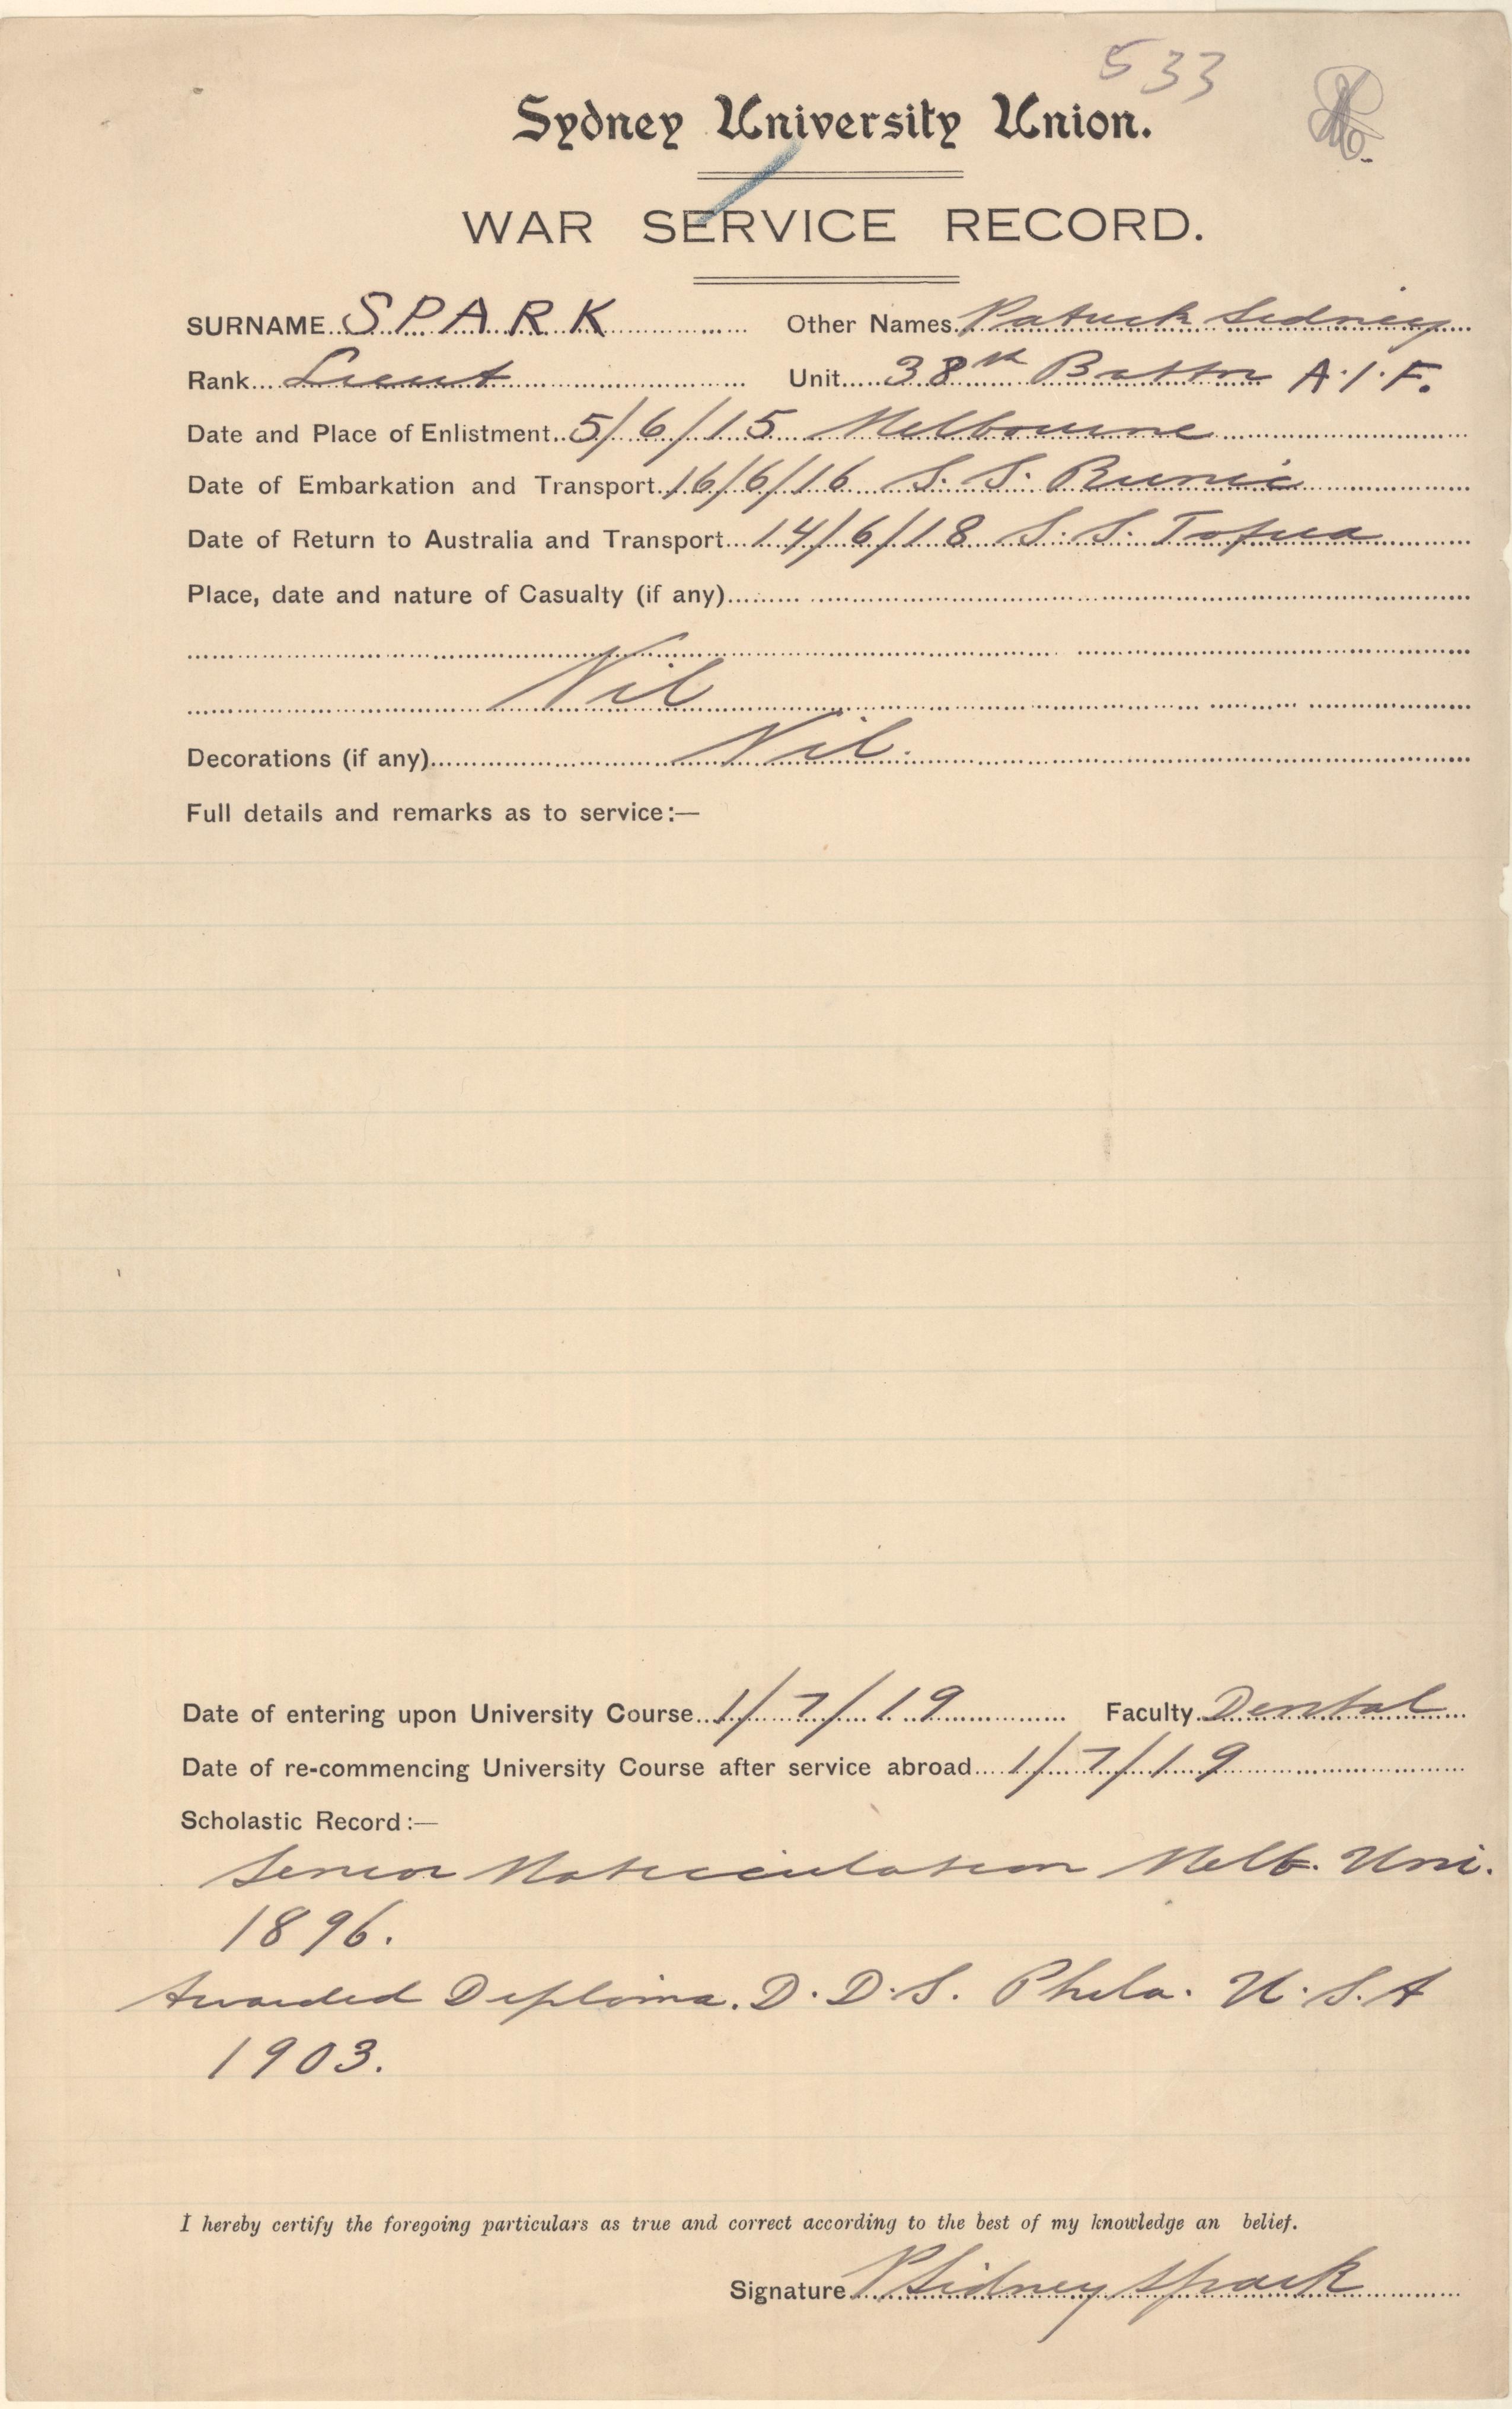 533
Sydney University Union.
WAR SERVICE RECORD.
SURNAME SPARK Other Names Patrick Sidney
Rank Lieut Unit 38th Battn A.I.F.
Date and Place of Enlistment 5/6/15 Melbourne
Date of Embarkation and Transport 16/6/16 S.S. Runic
Date of Return to Australia and Transport 14/6/18 S.S. Tofua
Place, date and nature of Casualty (if any)
Nil
Decorations (if any) Nil.
Full details and remarks as to service:—
Date of entering upon University Course 1/7/19 Faculty Dental
Date of re-commencing University Course after service abroad 1/7/19
Scholastic Record:—
Senior Matriculation Melb. Uni.
1896.
Awarded Diploma. D.D.S. Phila. U.S.A
1903.
I hereby certify the foregoing particulars as true and correct according to the best of my knowledge an belief.
Signature P Sidney Spark